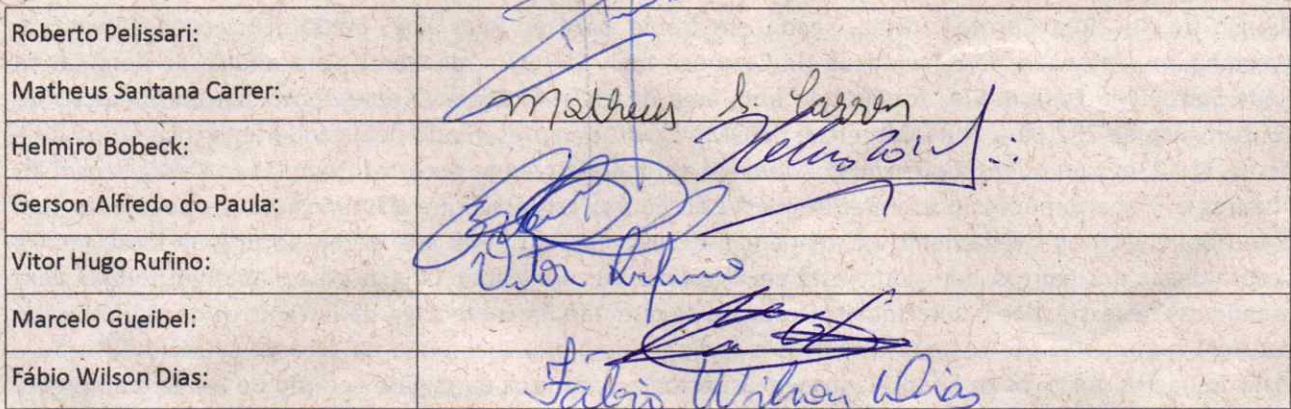 Roberto Pelissari:
Matheus Santana Carrer:
Matheus S. Carrer
Helmiro Bobeck:
Gerson Alfredo do Paula:
Vitor Hugo Rufino:
Vitor Rufino
Marcelo Gueibel:
Fábio Wilson Dias:
Fábio Wilson Dias